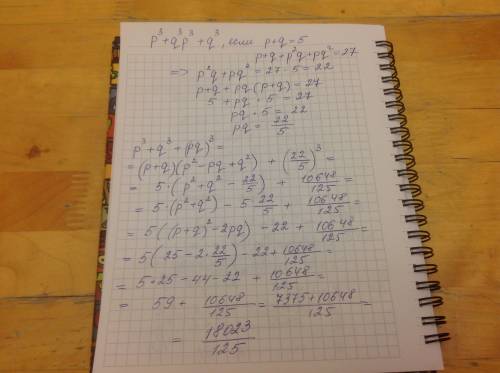 p³ + q³p³ + q³, если p+q=5
p+q+p²q+pq²=27
=> p²q+pq²=27-5=22
p+q+pq(p+q)=27
5+pq·5=27
pq·5=22
pq=22/5
p³+q³+(pq)³=
=(p+q)(p²-pq+q²)+(22/5)³=
=5·(p²+q²-22/5)+10648/125=
=5·(p²+q²)-5 22/5+10648/125=
=5((p+q)²-2pq)-22+10648/125=
=5(25-2·22/5)-22+10648/125=
=5·25-44-22+10648/125=
=59+10648/125=7375+10648/125=
=18023/125